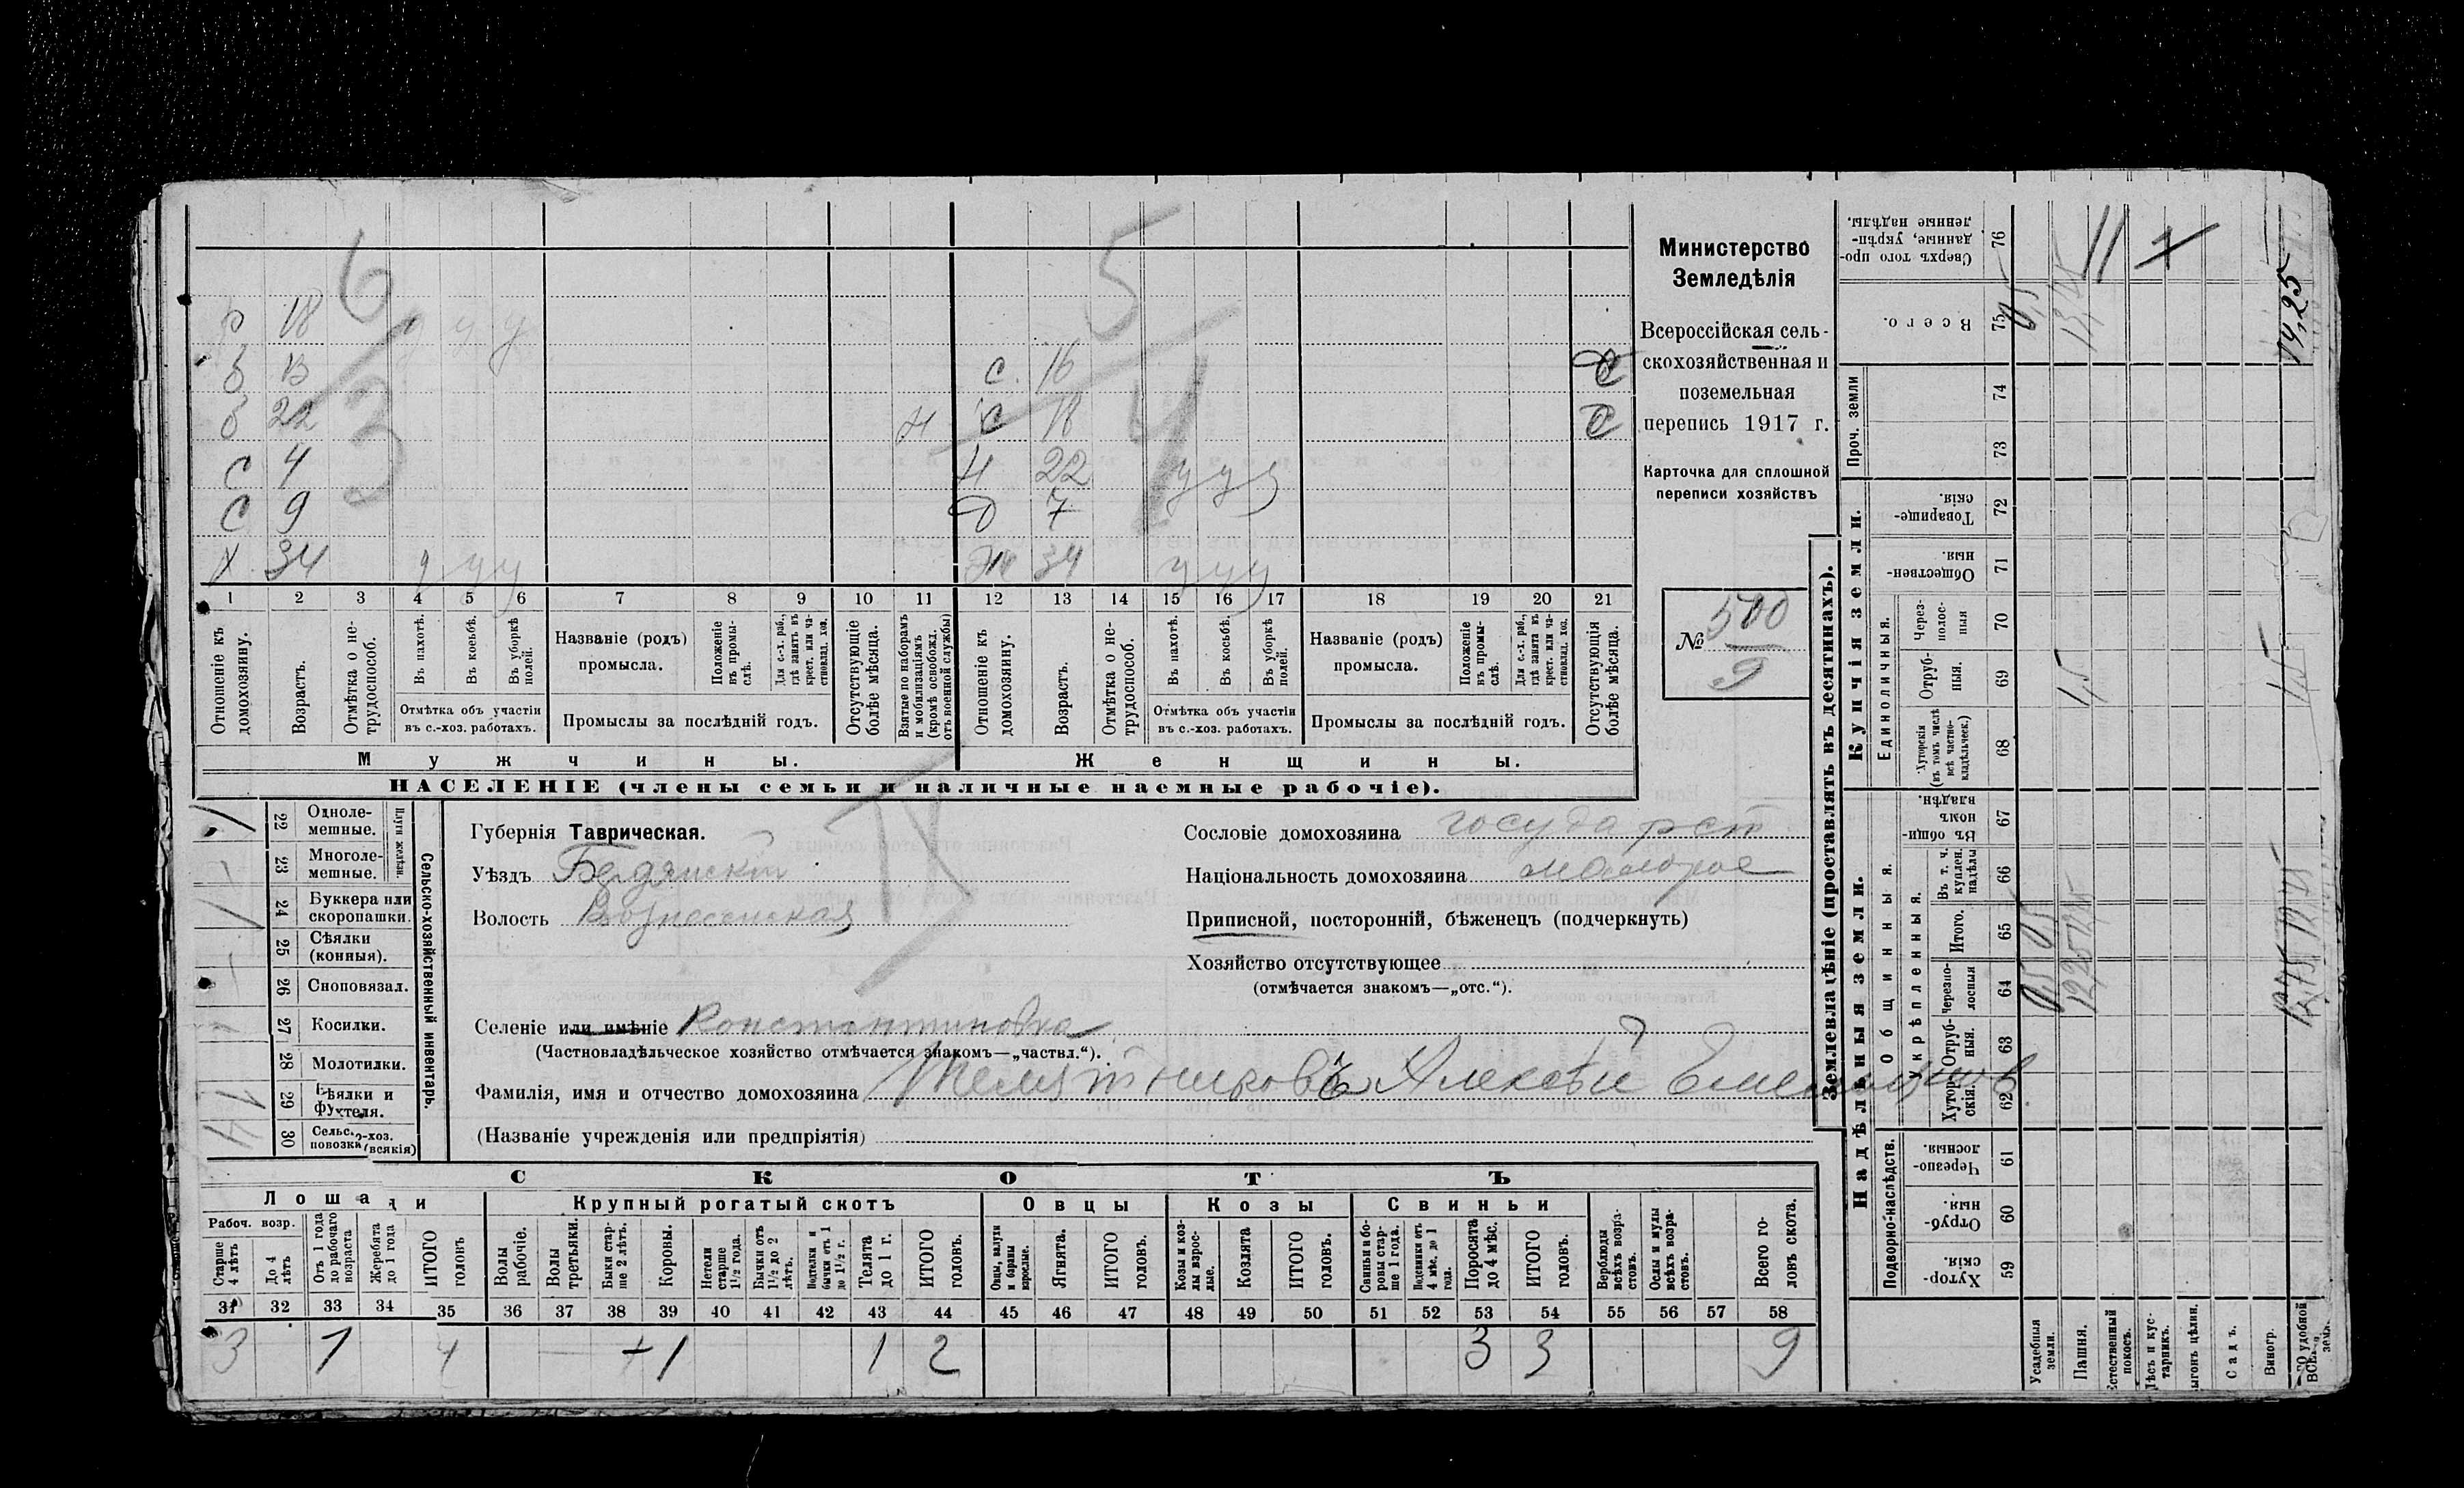 6 5
р 18 у у у
б 13 с. 16 С
б 22 3 н с 18 С
с 4 н 22 у у у
с 9 д 7
х 34 у у у ж 34 у у у
1 2 3 4 5 6 7 8 9 10 11 12 13 14 15 16 17 18 19 20 21
Отношеніе къ домохозяину.
Возрастъ.
Отмѣтка о нетрудоспособ.
Въ пахотѣ.
Въ косьбѣ.
Въ уборкѣ полей.
Отмѣтка объ участіи
въ с.-хоз. работахъ.
Названіе (родъ)
промысла.
Положеніе въ промыслѣ.
Для с.-х. раб., гдѣ занятъ въ крест. или частновлад. хоз.
Промыслы за послѣдній годъ.
Отсутствующіе болѣе мѣсяца.
Взятые по наборамъ и мобилизаціямъ (кромѣ освобожд. отъ военной службы)
Отношеніе къ домохозяину.
Возрастъ.
Отмѣтка о нетрудоспособ.
Въ пахотѣ.
Въ косьбѣ.
Въ уборкѣ полей.
Отмѣтка объ участіи
въ с.-хоз. работахъ.
Названіе (родъ)
промысла.
Положеніе въ промыслѣ.
Для с.-х. раб., гдѣ занята въ крест. или частновлад. хоз.
Промыслы за послѣдній годъ.
Отсутствующія болѣе мѣсяца.
Мужчины. Женщины.
НАСЕЛЕНІЕ (члены семьи и наличные наемные рабочіе).
Министерство
Земледѣлія
Всероссійская сель-
скохозяйственная и
поземельная
перепись 1917 г.
Карточка для сплошной
переписи хозяйствъ
№ 500
9
22 Одноле-
мешные.
23 Многоле-
мешные.
Плуги желѣзн.
24 Буккера или
скоропашки.
25 Сѣялки
(конныя).
26 Сноповязал.
27 Косилки.
28 Молотилки.
29 Вѣялки и
фухтеля.
30 Сельско-хоз.
повозка (всякія)
Сельско-хозяйственный инвентарь.
Губернія Таврическая.
Уѣздъ Бердянскій
Волость Вознесенская
Сословіе домохозяина государст
Національность домохозяина малорос
Приписной, посторонній, бѣженецъ (подчеркнуть)
Хозяйство отсутствующее
(отмѣчается знакомъ—„отс.“).
Селеніе или имѣніе Константиновка
(Частновладѣльческое хозяйство отмѣчается знакомъ—„частвл.“).
Фамилія, имя и отчество домохозяина Телятниковъ Алексѣй Емельянов
(Названіе учрежденія или предпріятія)
СКОТЪ
Лошади Крупный рогатый скотъ Овцы Козы Свиньи
Рабоч. возр.
Старше 4 лѣтъ
До 4 лѣтъ
Отъ 1 года до рабочаго возраста
Жеребята до 1 года
ИТОГО головъ
Волы рабочіе.
Волы третьяки.
Быки старше 2 лѣтъ.
Коровы.
Нетели старше 1½ года.
Бычки отъ 1½ до 2 лѣтъ.
Подтелки и бычки отъ 1 до 1½ г.
Телята до 1 г.
ИТОГО головъ.
Овцы, валухи и бараны взрослые.
Ягнята.
ИТОГО головъ.
Козы и козлы взрослые.
Козлята
ИТОГО головъ.
Свиньи и боровы старше 1 года.
Подсвинки отъ 4 мѣс. до 1 года.
Поросята до 4 мѣс.
ИТОГО головъ.
Верблюды всѣхъ возрастовъ.
Ослы и мулы всѣхъ возрастовъ.
Всего головъ скота.
31 32 33 34 35 36 37 38 39 40 41 42 43 44 45 46 47 48 49 50 51 52 53 54 55 56 57 58
3 1 4 1 1 2 3 3 9
Землевладѣніе (проставлять въ десятинахъ).
Надѣльныя земли. Купчія земли. Проч. земли
Подворно-наслѣдств.
Общинныя.
Укрѣпленныя.
Единоличныя.
Хуторскія. 59
Отрубныя. 60
Черезполосныя. 61
Хуторскія. 62
Отрубныя. 63
Черезполосныя 64
Итого. 65
Въ т. ч. куплен. надѣлы 66
Въ общинномъ владѣн. 67
Хуторскія (въ томъ числѣ всѣ частновладѣльческ.) 68
Отрубныя. 69
Черезполосныя 70
Общественныя. 71
Товарищескія. 72
73
74
Всего. 75
Сверхъ того проданные, укрѣпленные надѣлы. 76
Усадебныя земли. 0,5 0,5 0,5
Пашня. 12,25 12,25 1,5 13,75
Естественный покосъ.
Лѣсъ и кустарникъ.
Выгонъ цѣлин.
Садъ.
Виногр.
ВСЕГО удобной земли. 12,75 12,75 1,5 14,25